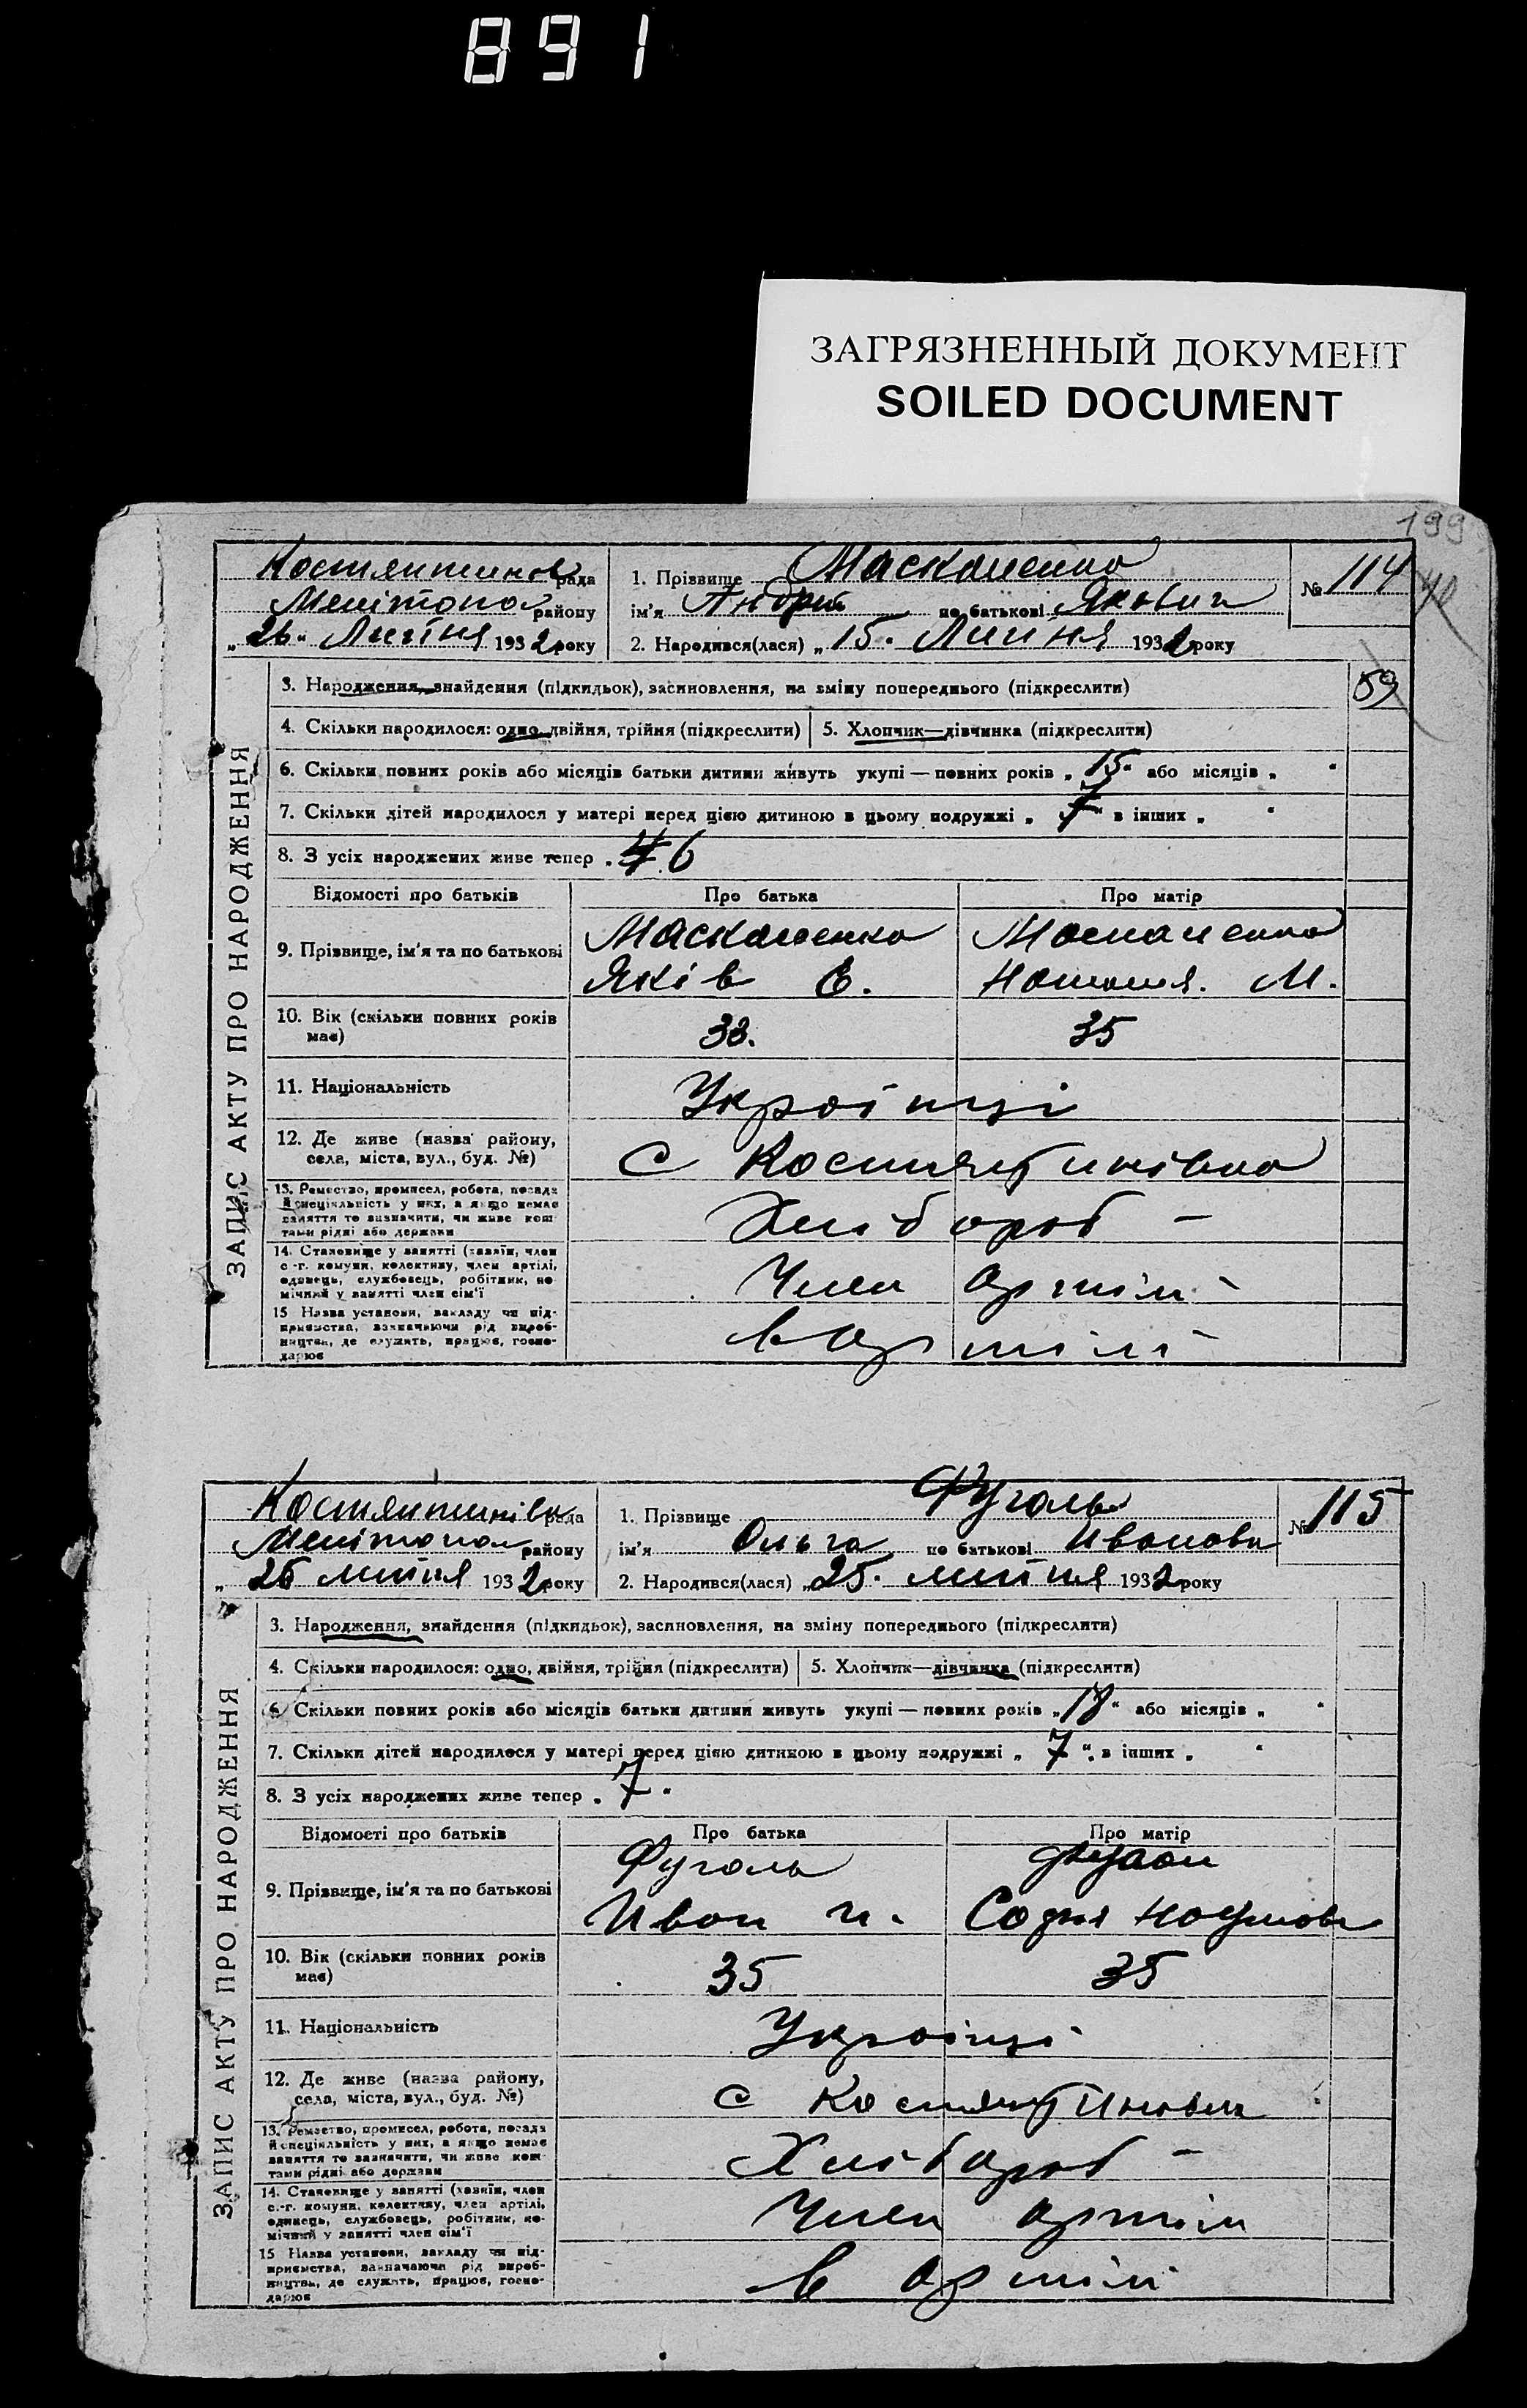 891
ЗАГРЯЗНЕННЫЙ ДОКУМЕНТ
SOILED DOCUMENT
199
Костянтинов рада
Мелітопол району
„26“ Липня 1932 року
1. Прізвище
ім'я Андрій по батькові Якович
2. Народився(лася) „15“ Липня 1932 року
№ 114
ЗАПИС АКТУ ПРО НАРОДЖЕННЯ
3. Народження, знайдення (підкидьок), засиновлення, на зміну попереднього (підкреслити)
59
4. Скільки народилося: одно, двійня, трійня (підкреслити)
5. Хлопчик—дівчинка (підкреслити)
6. Скільки повних років або місяців батьки дитини живуть укупі — повних років „15“ або місяців „ “
7. Скільки дітей народилося у матері перед цією дитиною в цьому подружжі „7“ в інших „ “
8. З усіх народжених живе тепер „ 6
Відомості про батьків
Про батька
Про матір
9. Прізвище, ім'я та по батькові
Яків Є.
Наталія. М.
10. Вік (скільки повних років має)
33.
35
11. Національність
Українці
12. Де живе (назва району, села, міста, вул., буд. №)
С Костянтинівка
13. Ремество, промисел, робота, посада й спеціяльність у них, а якщо немає заняття то визначити, чи живе коштами рідні або держави
Хлібороб –
14. Становище у занятті (хазяїн, член с.-г. комуни, колективу, член артілі, одинець, службовець, робітник, помічний у занятті член сім'ї
Член артілі
15 Назва установи, закладу чи підприємства, зазначаючи рід виробництва, де служить, працює, господарює
в артілі
Костянтинівк рада
Мелітопол району
„26 липня 1932 року
1. Прізвище Фуголь
ім'я Ольга по батькові Ивановн
2. Народився(лася) „25. липня 1932 року
№ 115
ЗАПИС АКТУ ПРО НАРОДЖЕННЯ
3. Народження, знайдення (підкидьок), засиновлення, на зміну попереднього (підкреслити)
4. Скільки народилося: одно, двійня, трійня (підкреслити)
5. Хлопчик—дівчинка (підкреслити)
6. Скільки повних років або місяців батьки дитини живуть укупі — повних років „17“ або місяців „ “
7. Скільки дітей народилося у матері перед цією дитиною в цьому подружжі „7“ в інших „ “
8. З усіх народжених живе тепер „7“
Відомості про батьків
Про батька
Про матір
9. Прізвище, ім'я та по батькові
Фуголь
Иван И.
Софія Наумовн
10. Вік (скільки повних років має)
35
35
11. Національність
Українці
12. Де живе (назва району, села, міста, вул., буд. №)
С Костянтинівк
13. Ремество, промисел, робота, посада й спеціяльність у них, а якщо немає заняття то зазначити, чи живе коштами рідні або держави
Хлібороб –
14. Становище у занятті (хазяїн, член с.-г. комуни, колективу, член артілі, одинець, службовець, робітник, помічний у занятті член сім'ї
Член артіли
15 Назва установи, закладу чи підприємства, зазначаючи рід виробництва, де служить, працює, господарює
в артілі